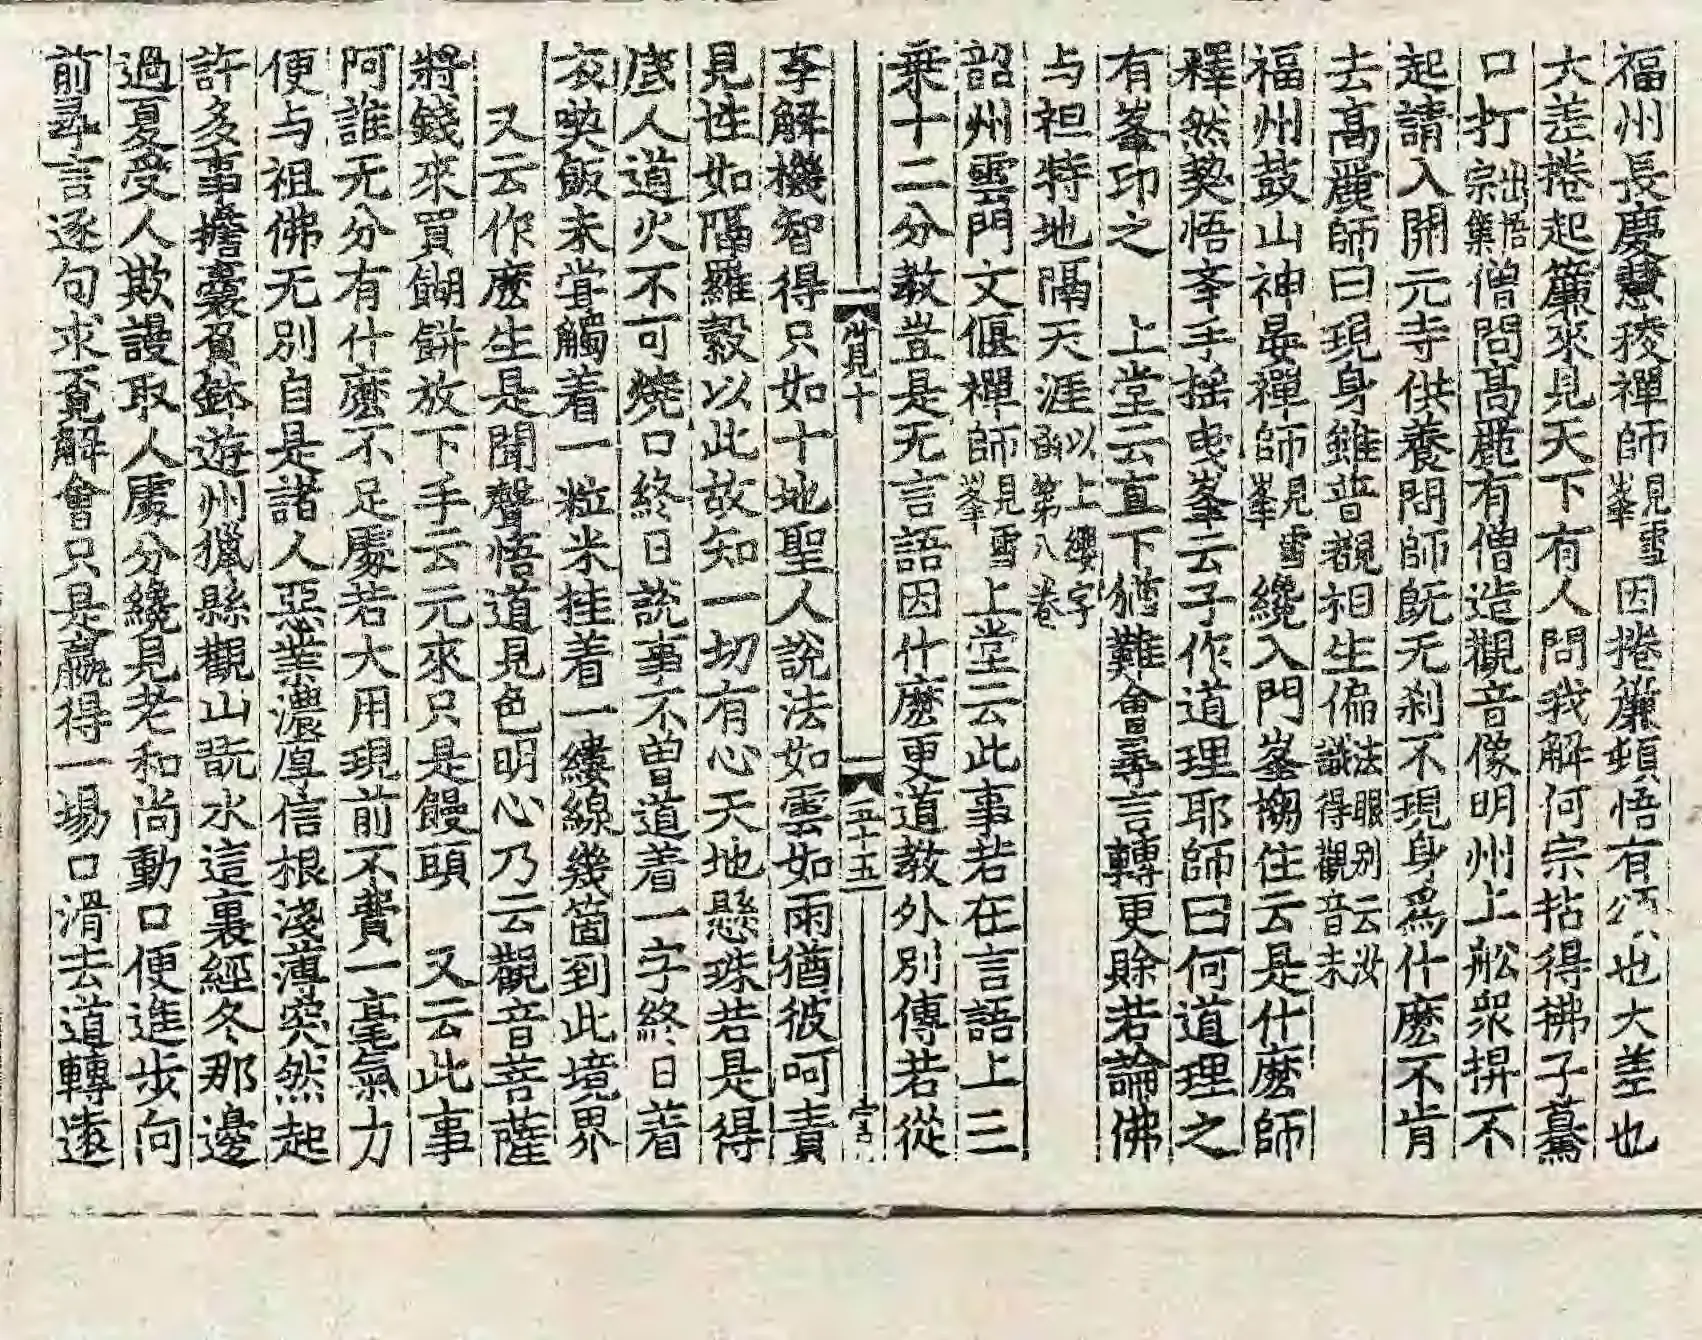 福州長慶慧稜禪師見雪峯因捲簾頓悟有頌也大差也
大差捲起簾來見天下有人問我解何宗拈得拂子驀
口打出悟宗集僧問高麗有僧造觀音像明州上舩衆舁不
起請入開元寺供養問師旣无刹不現身爲什麽不肯
去高麗師曰現身雖普覩相生偏法眼别云汝識得觀音未
福州鼓山神晏禪師見雪峯纔入門峯搊住云是什麽師
釋然契悟本手揺曵峯云子作道理耶師曰何道理之
有峯印之　上堂云直下猶難會尋言轉更賖若論佛
与祖特地隔天涯以上纓字函第八卷
韶州雲門文偃禪師見雪峯上堂云此事若在言語上三
乗十二分教豈是无言語因什麽更道教外别傳若從
見十　五十五
斈解機智得只如十地聖人說法如雲如雨猶彼呵責
見性如隔羅縠以此故知一切有心天地懸殊若是得
底人道火不可燒口終日說事不曾道着一字終日着
衣喫飯未甞觸着一粒米挂着一縷線幾箇到此境界
又云作麽生是聞聲悟道見色明心乃云觀音菩薩
將錢來買餬餅放下手云元來只是饅頭　又云此事
阿誰无分有什麽不足處若大用現前不費一毫氣力
便与祖佛无别自是諸人惡業濃厚信根淺薄突然起
許多事擔囊負鉢遊州獵縣觀山翫水這裏經冬那邊
過夏受人欺謾取人處分纔見老和尚動口便進步向
前尋言逐句求覔解會只是贏得一場口滑去道轉遠